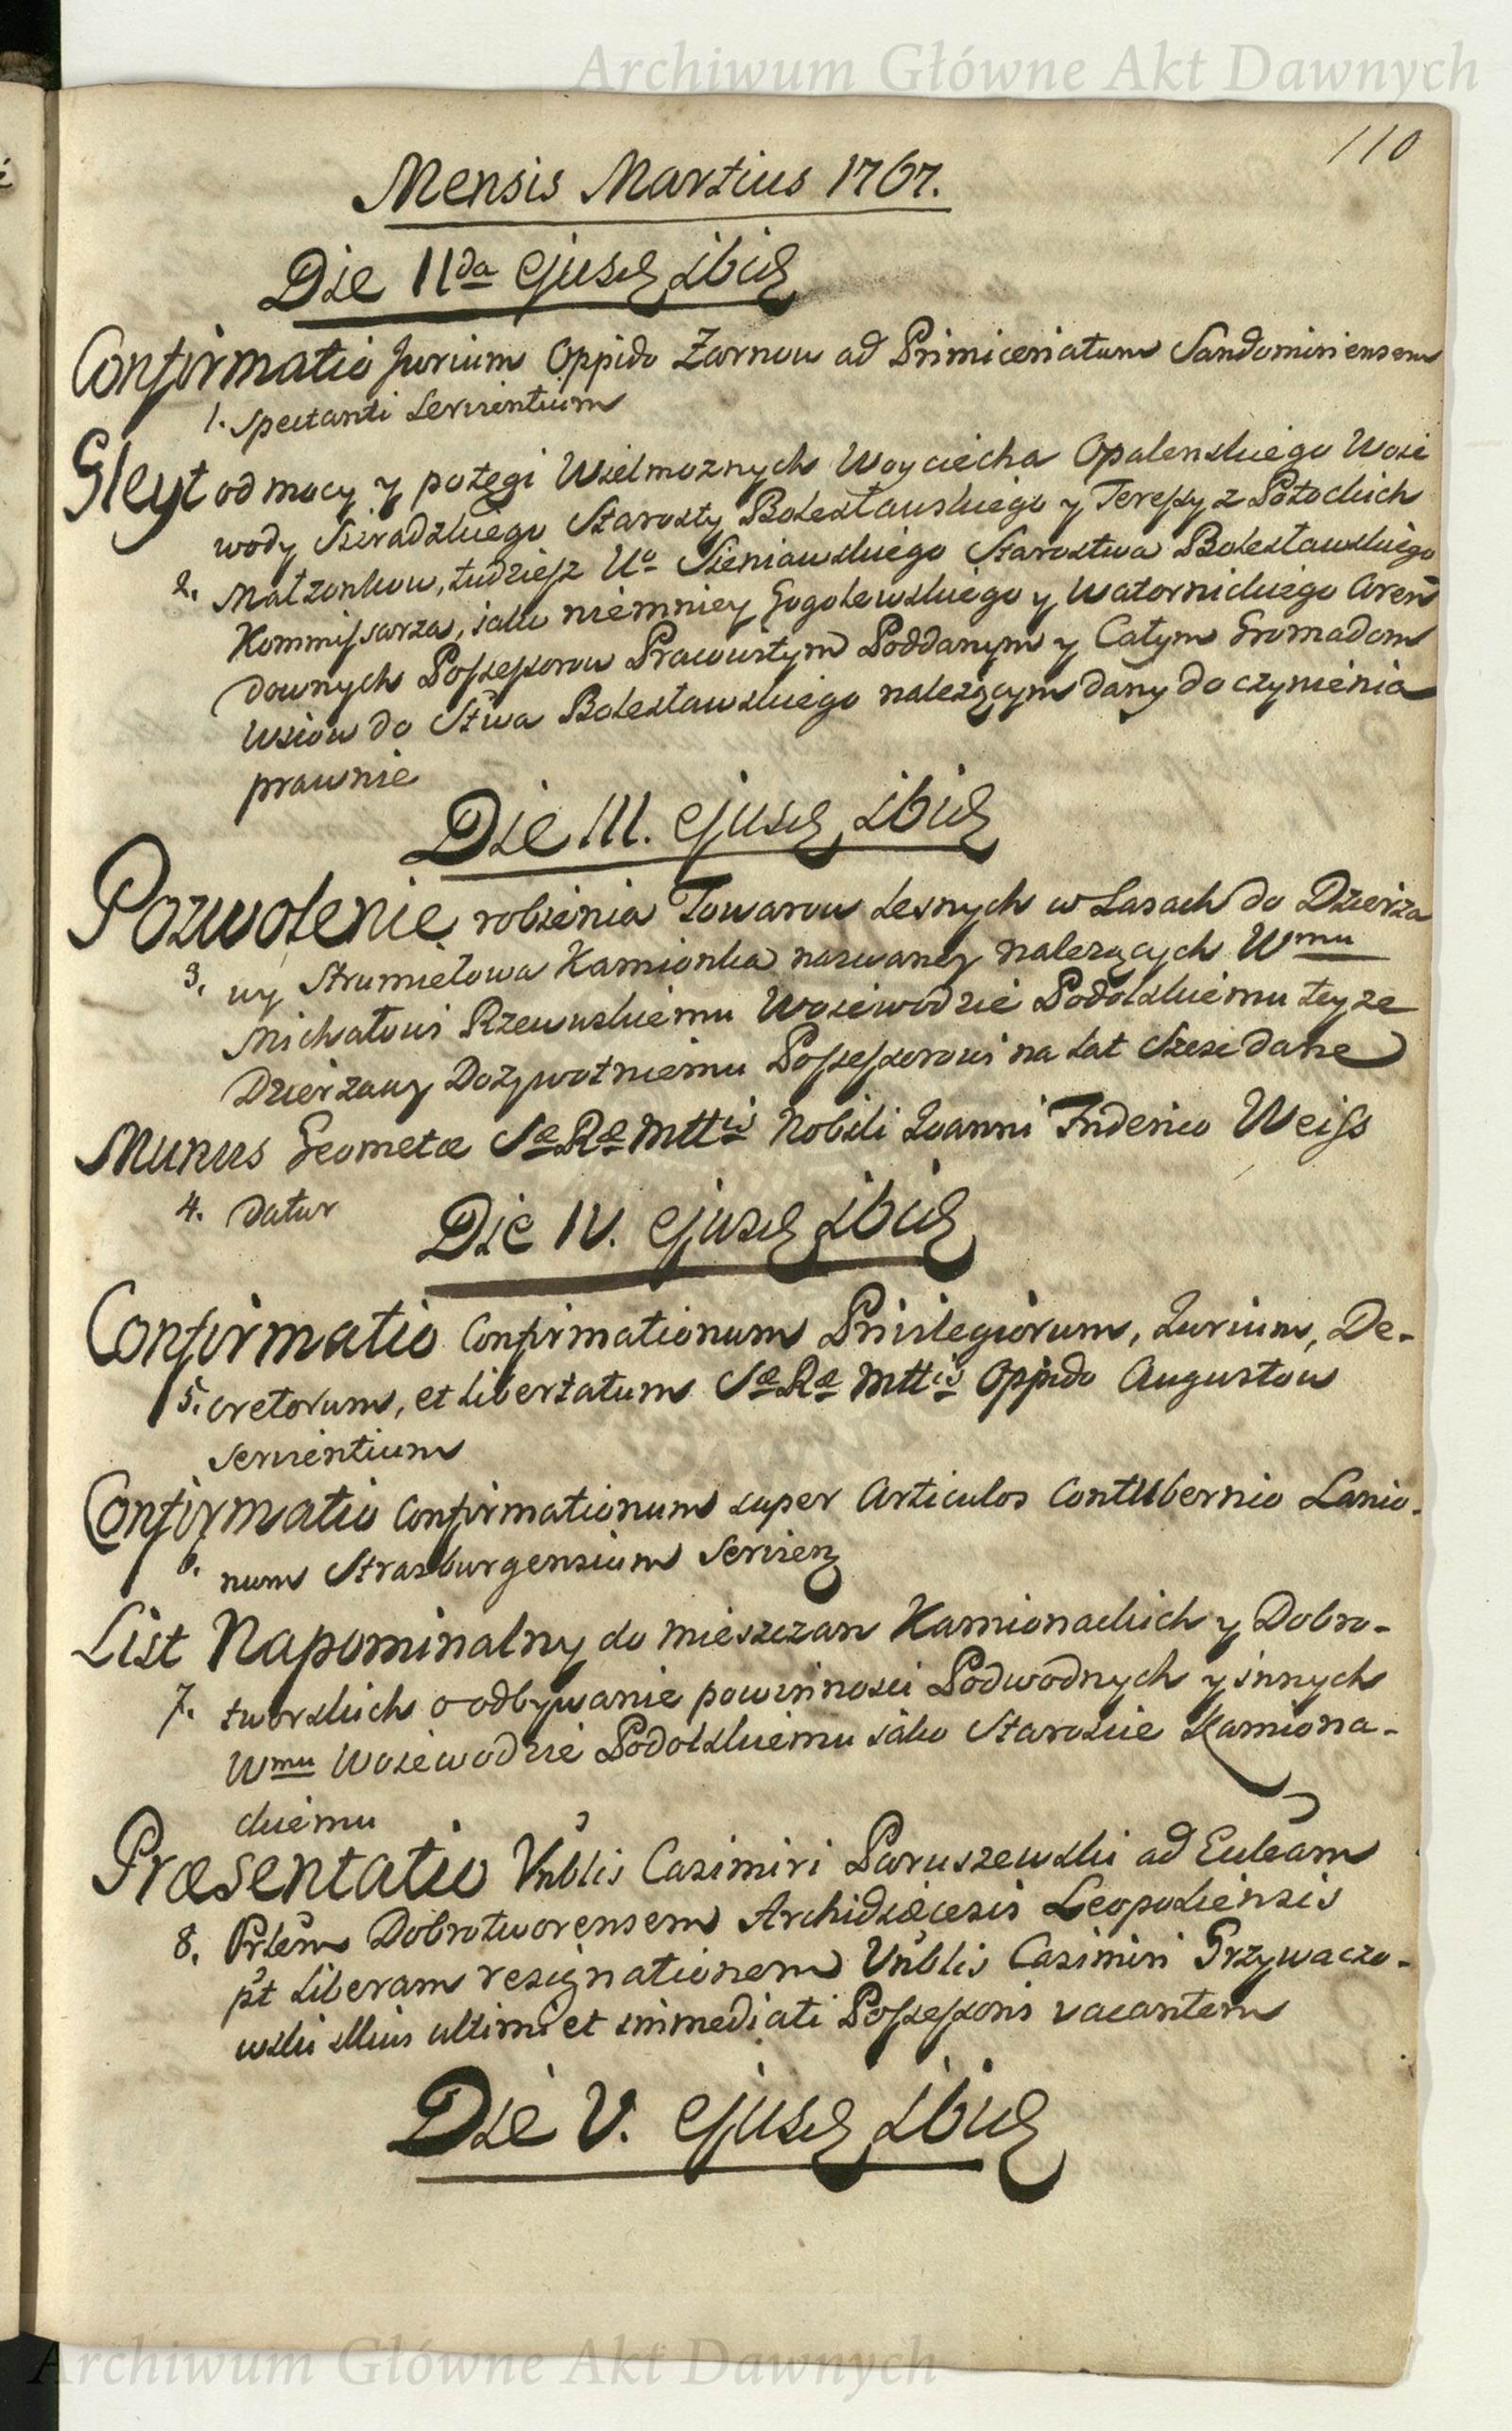 Archiwum Główne Akt Dawnych
110
Mensis Martius 1767.
Die IIda ejusd ibid
Confirmatio Jurium Oppido Zarnow ad Primiceriatum Sandomiriensem
1. spectanti servientium
Gleyt od mocy y potęgi Wielmoznych Woyciecha Opalenskiego Woie
wody Sieradzkiego Starosty Bolesławskiego y Teressy z Potockich
2. Małzonkow, tudziesz Uo Sieniawskiego Starostwa Bolesławskiego
Kommissarza, iako niemniey Gogolewskiego y Watornickiego Aren
downych Possessorow Pracowitym Poddanym y Całym Gromadom
Wsiow do Stwa Bolesławskiego nalezącym dany do czynienia
prawnie
Die III. ejusd ibid
Pozwolenie robienia Towarow Lesnych w Lasach do Dzierza
3. wy Strumiełowa Kamionka nazwaney nalezących Wmu
Michałowi Rzewuskiemu Woiewodzie Podolskiemu teyze
Dzierzawy Dozywotniemu Possessorowi na lat szesc dane
Munus Geometæ Sæ Ræ Mttis Nobili Joanni Friderico Weiss
4. datur
Die IV. ejusd ibid
Confirmatio Confirmationum Privilegiorum, Jurium, De-
5. cretorum, et Libertatum Sæ Ræ Mttis Oppido Augustow
servientium
Confirmatio Confirmationum super Articulos Contubernio Lanio-
6. num Strasburgensium servien
List Napominalny do Mieszczan Kamionackich y Dobro-
7. tworskich o odbywanie powinnosci Podwodnych y innych
Wmu Woiewodzie Podolskiemu iako Staroscie Kamiona-
ckiemu
Præsentatio Vnblis Casimiri Paruszewski ad Eccleam
8. Prlem Dobrotworensem Archidiæcesis Leopoliensis
pt liberam resignationem Vnblis Casimiri Grzywaczo-
wski illius ultimi et immediati Possessoris vacantem
Die V. ejusd ibid
Archiwum Główne Akt Dawnych